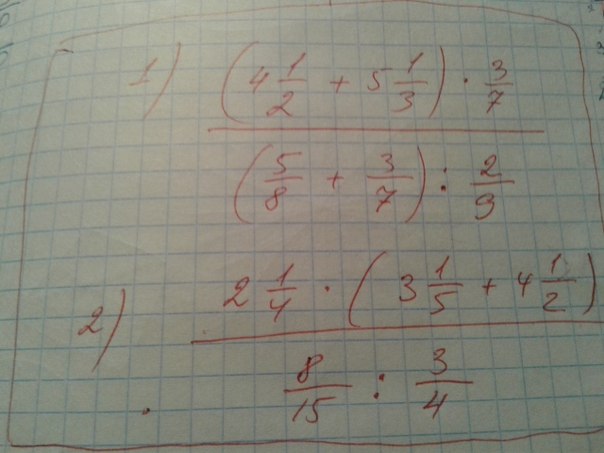 1) (4 1/2 + 5 1/3) · 3/7
(5/8 + 3/7) : 2/9
2) 2 1/4 · (3 1/5 + 4 1/2)
8/15 : 3/4